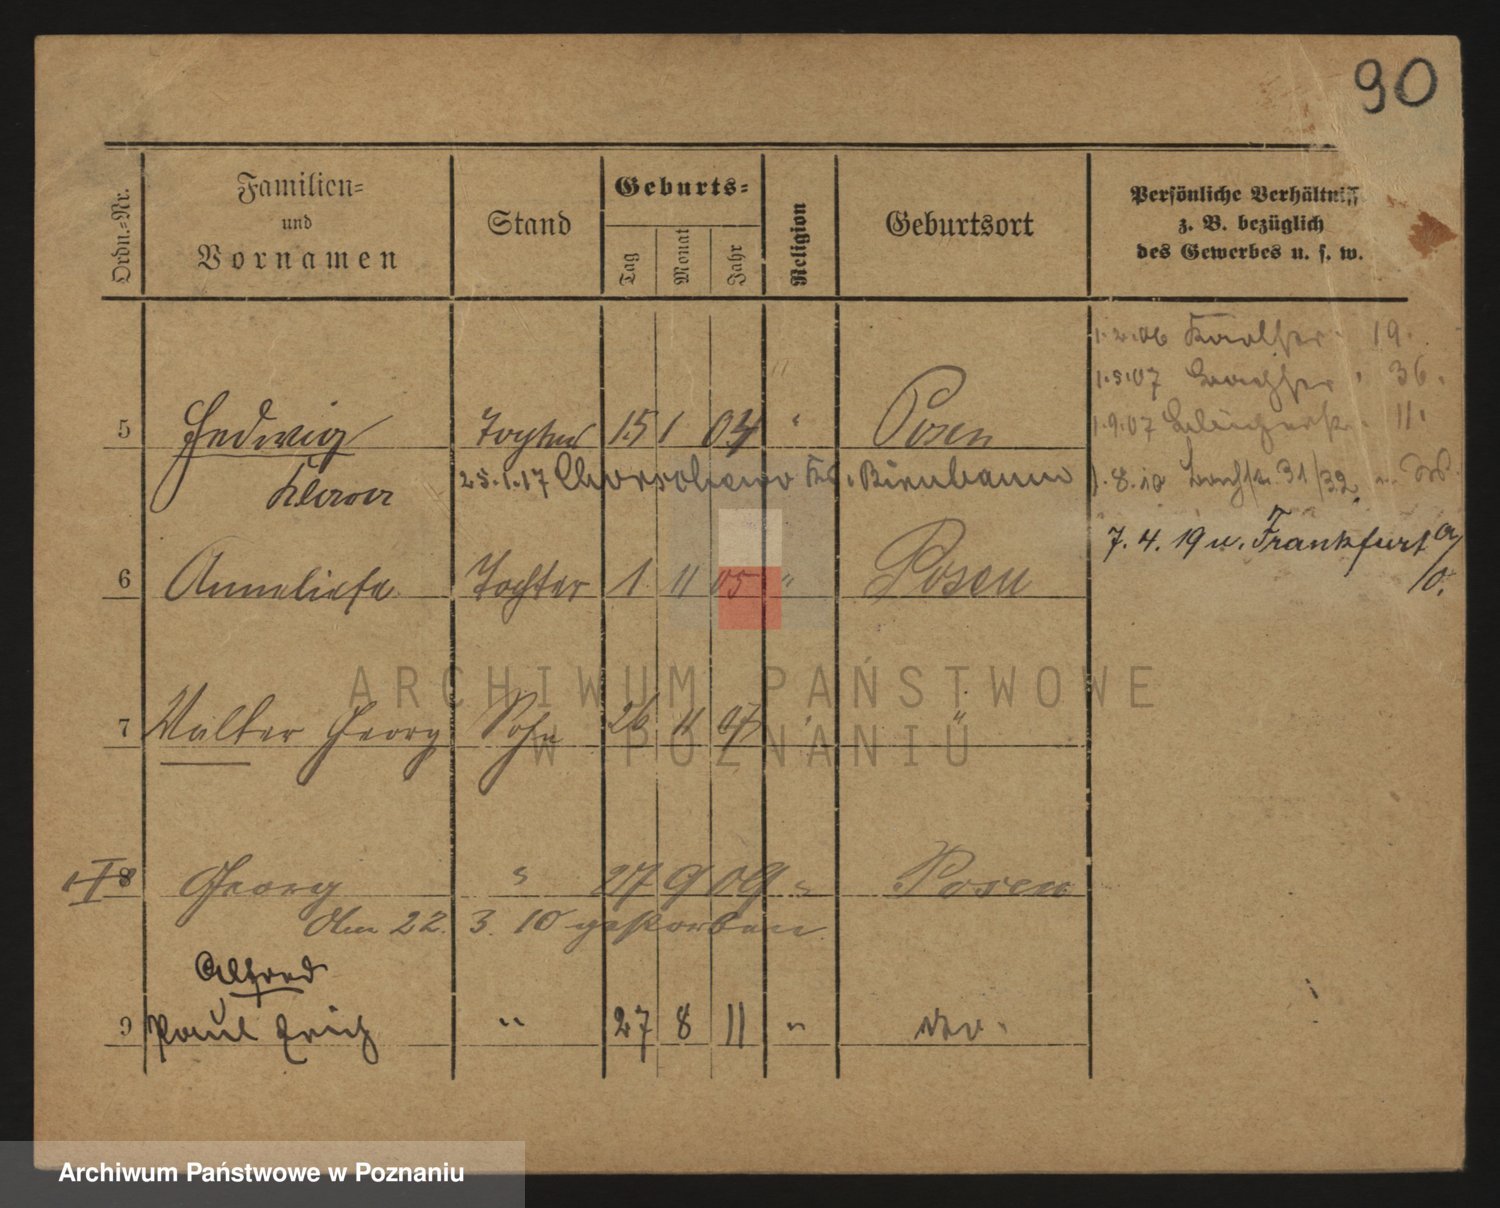 90
Ordn.-Nr.
Familien-
und
Vornamen
Stand
Geburts-
Tag
Monat
Jahr
Religion
Geburtsort
Persönliche Verhältniss
z. B. bezüglich
des Gewerbes u. s. w.
1.2.06 19.
1.5.07 36.
5 Hedwig Tochter 15 1 04 " Posen
1.9.07 11.
Klara
25.1.17 Chorzchewo Kr. Birnbaum
1.8.10 31/32
7. 4. 19 u. Frankfurt a/
O.
6 Anneliese Tochter 1 11 05 " Posen
ARCHIWUM PAŃSTWOWE
W POZNANIU
7 Walter Georg Sohn 26 11 07 " "
8 Georg " 27 9 09 " Posen
Am 22. 3. 10 gestorben.
Alfred
9 Paul Erich " 27 8 11 " do.
Archiwum Państwowe w Poznaniu